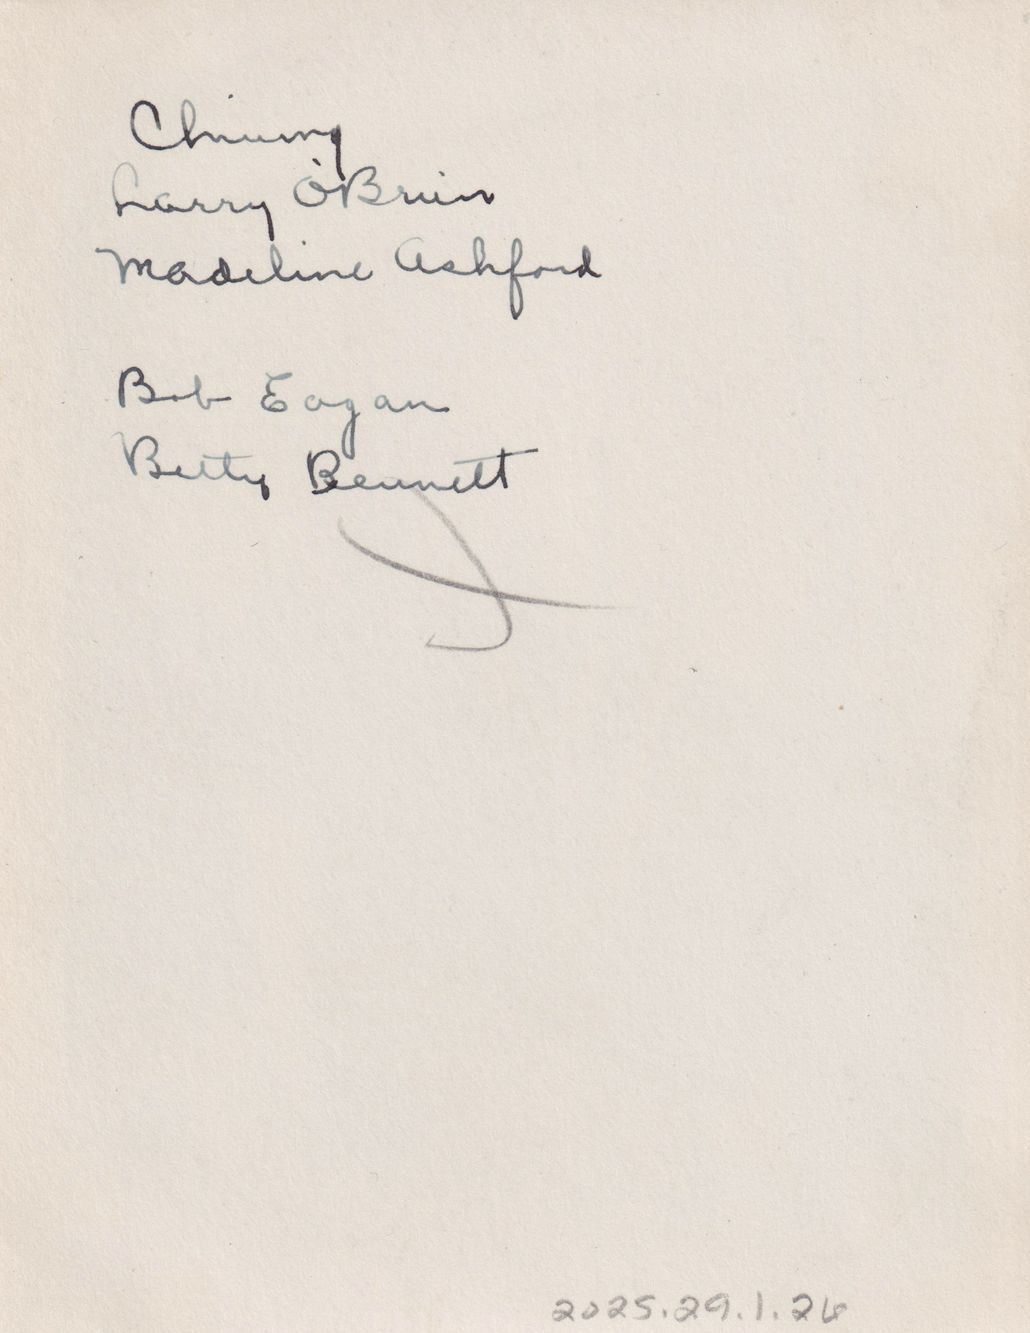 Larry O'Brien
Madeline Ashford
Bob Eagan
Betty Bennett
2025.29.1.26